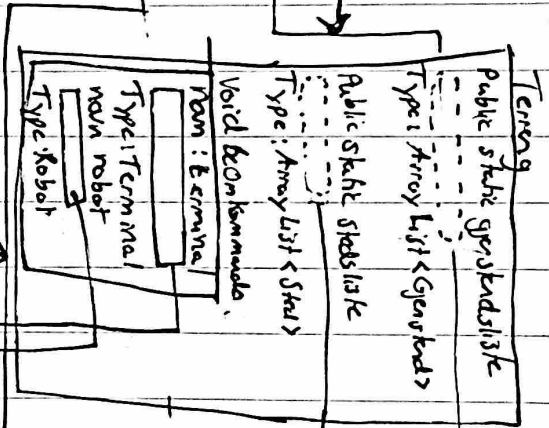 Terreng
Public static gjenstandsliste
Type: ArrayList<Gjenstand>
Public static stedsliste
Type: ArrayList<Sted>
Void beOmKommando
navn: termina
Type: Terminal
navn robot
Type: Robot